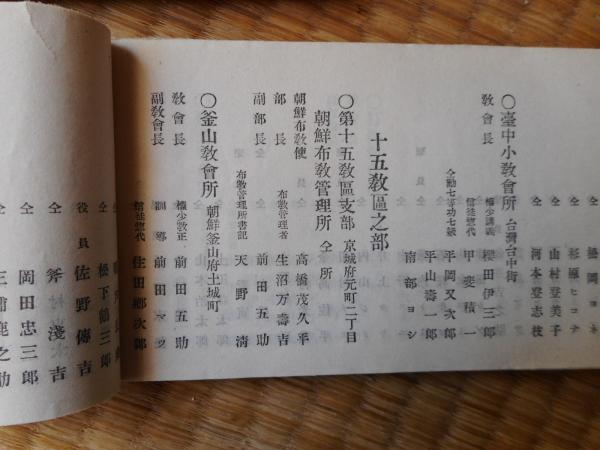 仝 松岡ヨネ
仝 杉原ヒコテ
仝 山村登美子
仝 河本登志枝
〇臺中小教會所 台灣台中街
教會長 權少講義 櫻田伊三郎
信徒惣代 甲斐積一
仝勳七等功七級 平岡又次郎
平山壽一郎
南部ヨシ
十五教區之部
〇第十五教區支部 京城府元町二丁目
朝鮮布教管理所 仝所
朝鮮布教使 高橋茂久平
部長 布教管理者 生沼万壽吉
副部長 前田五助
布教管理所書記 天野淸
〇釜山教會所 朝鮮釜山府土城町
教會長 權少教正 前田五助
副教會長 前田
信徒惣代 住田郷次郎
仝 松下鶴三郎
役員 佐野傳吉
仝 斧淺吉
仝 岡田忠三郎
仝 三浦鹿之助